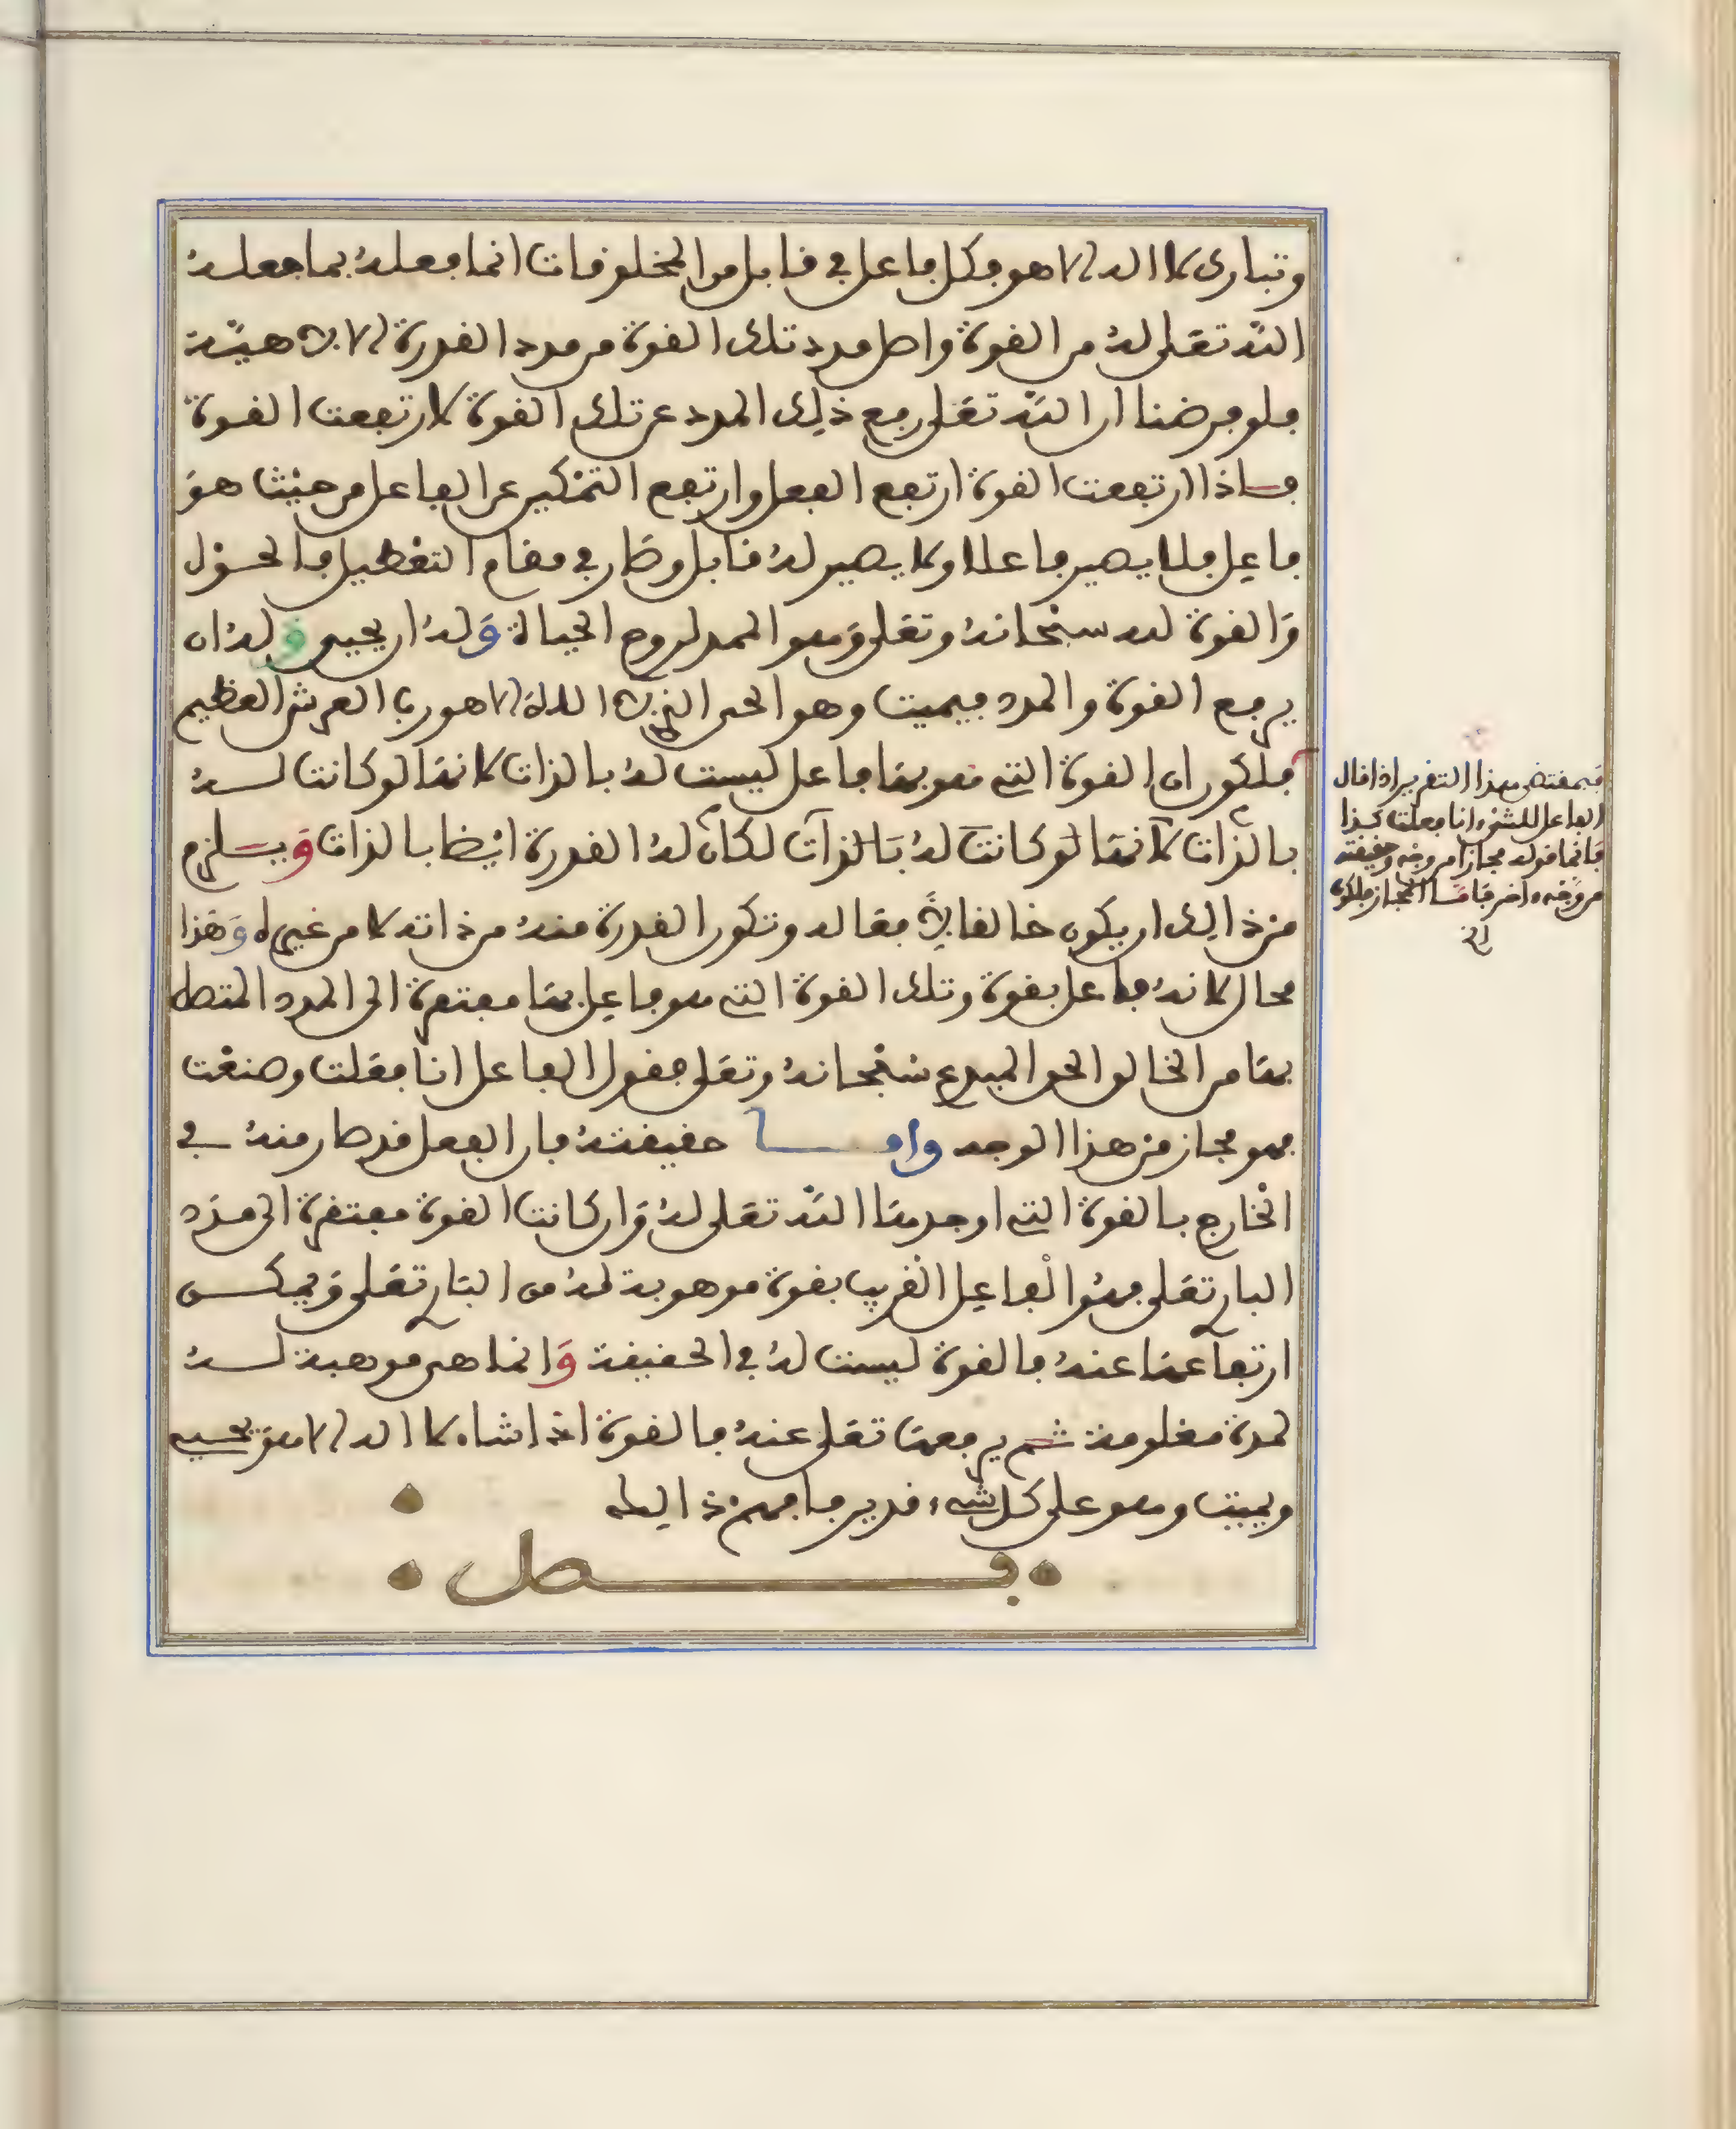 وتبارك لا اله الا هو فكل فاعل في قابل من المخلوقات انما فعله بما جعله
الله تعلى له من القوة واصل مدد تلك القوة من مدد القدرة الالاهية
فلو فرضنا ان الله تعلى رفع ذلك المدد عن تلك القوة لارتفعت القوة
فاذا ارتفعت القوة ارتفع الفعل وارتفع التمكين عن الفاعل من حيث هو
فاعل فلا يصير فاعلا ولا يصير له قابل وصار في مقام التعطيل فالحول
والقوة له سبحانه وتعلى وهو الممد لروح الحياة وله ان يحيي وله ان
يرفع القوة والمدد فيميت وهو الحي الذي لا اله الا هو رب العرش العظيم
فلكون القوة التي هو بها فاعل ليست له بالذات لانها لو كانت له
بالذات لانها لو كانت له بالذات لكان له القدرة ايضا بالذات ويلزم
من ذالك ان يكون خالقا لافعاله وتكون القدرة منه من ذاته لا من غيره وهذا
محال لانه فاعل بقوة وتلك القوة التي هو فاعل بها مفتقرة الى المدد المتصل
بها من الخالق الحق المبدع سبحانه وتعلى فقول الفاعل انا فعلت وصنعت
فهو مجاز من هذا الوجه واما حقيقته فان الفعل قد صار منه في
الخارج بالقوة التي اوجدها الله تعلى له وان كانت القوة مفتقرة الى مدد
البارئ تعلى فهو الفاعل القريب بقوة موهوبة له من البارئ تعلى ويمكن
ارتفاعها عنه فالقوة ليست له في الحقيقة وانما هي موهبة له
لمدة معلومة ثم يرفعها تعلى عنه فالقوة اذا شاء لا اله الا هو يحيي
ويميت وهو على كل شيء قدير فافهم ذالك
فصل
فبمقتضى هذا التقرير اذا قال
الفاعل للشيء انا فعلت كذا
فانما قوله مجازا من وجه وحقيقة
من وجه اخر فاما المجاز فلكون
الخ